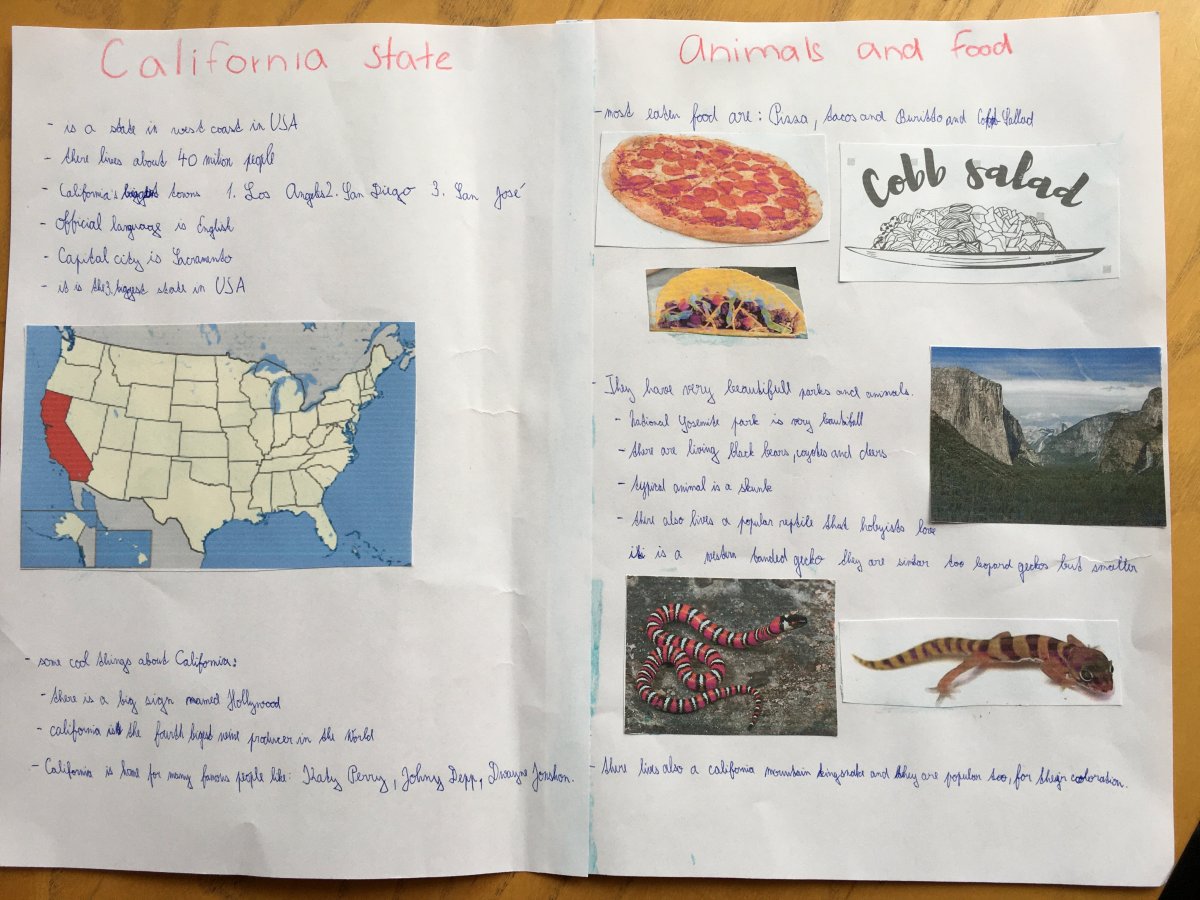 California state
- is a state in west coast in USA
- there lives about 40 milion people
- California's biggest towns 1. Los Angels 2. San Diego 3. San José
- Official language is English
- Capital city is Sacramento
- it is the 3. biggest state in USA
- some cool things about California:
- there is a big sign named Hollywood
- california is the fourth bigest wine producer in the World
- California is home for many famous people like: Katy Perry, Johny Depp, Dwayne Jonshon.
Animals and Food
- most eaten food are: Pizza, tacos and Buritto and Cobb Sallad
Cobb salad
- They have very beautifull parks and animals.
- National Yosemite park is very beautifull
- there are living black bears, coyotes and deers
- typical animal is a skunk
- there also lives a popular reptile that hobyists love
it is a western banded gecko they are similar too leopard geckos but smaller
- there lives also a california mountain kingsnake and they are popular too, for their coloration.